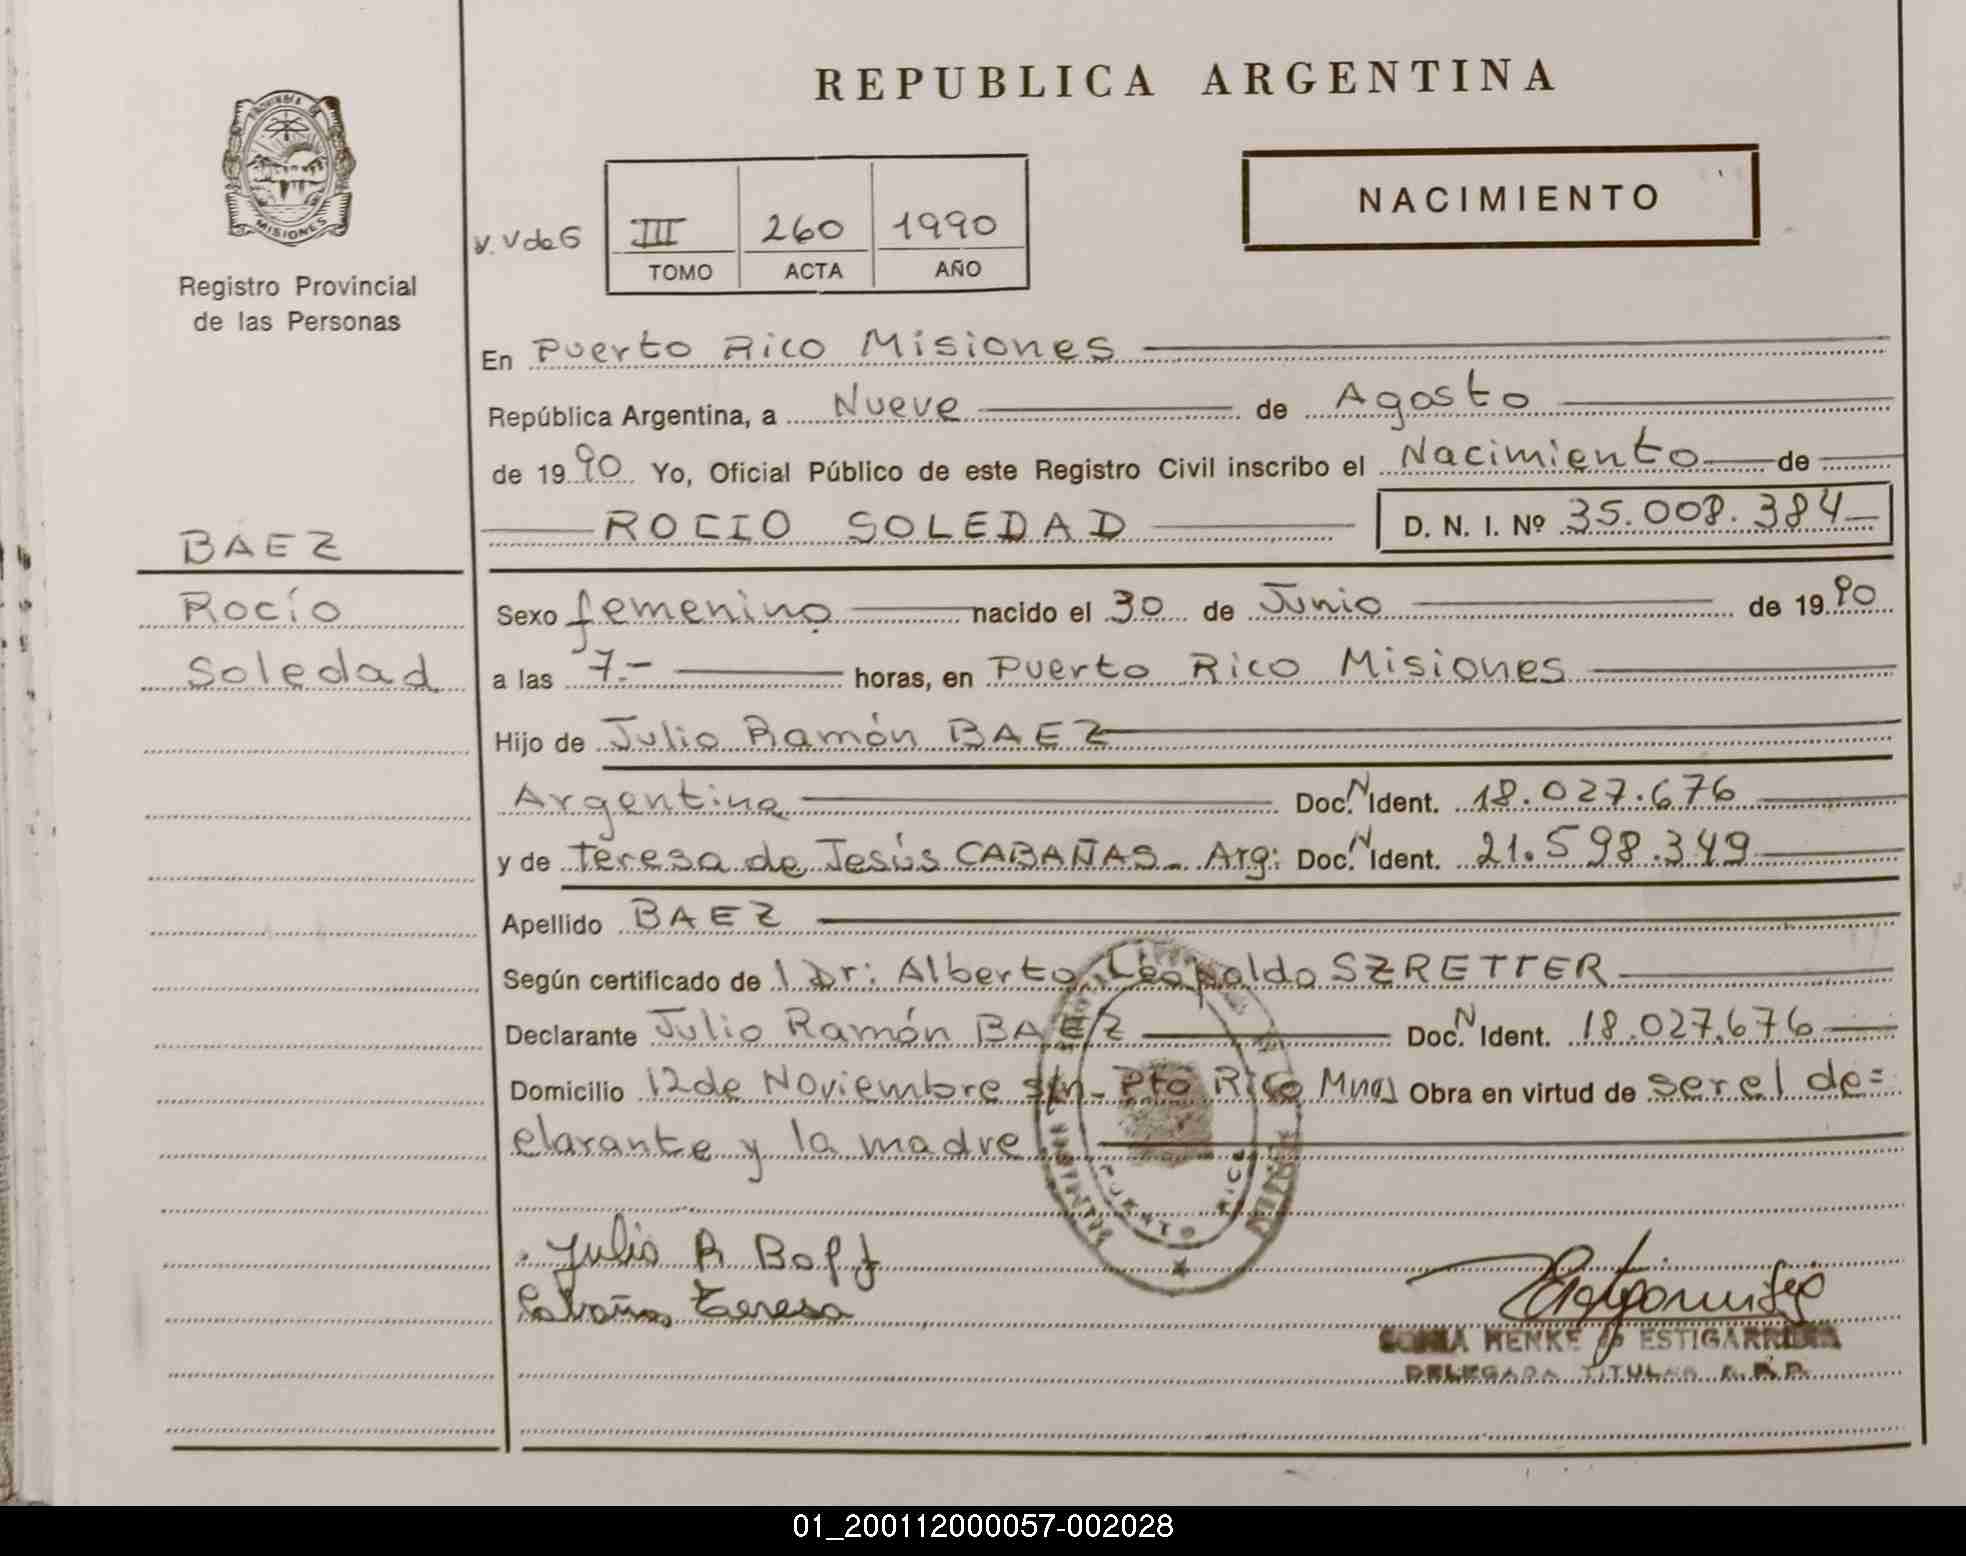 REPUBLICA ARGENTINA
NACIMIENTO
PROVINCIA DE
MISIONES
Registro Provincial
de las Personas
V. V de G
III 260 1990
TOMO ACTA AÑO
En Puerto Rico Misiones
República Argentina, a Nueve de Agosto
de 1990 Yo, Oficial Público de este Registro Civil inscribo el Nacimiento de
ROCIO SOLEDAD D. N. I. Nº 35.008.384
BAEZ
Rocío
Soledad
Sexo femenino nacido el 30 de Junio de 1990
a las 7.- horas, en Puerto Rico Misiones
Hijo de Julio Ramón BAEZ
Argentina Doc. N Ident. 18.027.676
y de Teresa de Jesús CABAÑAS_ Arg: Doc. N Ident. 21.598.349
Apellido BAEZ
Según certificado de l Dr: Alberto Leopoldo SZRETTER
Declarante Julio Ramón BAEZ Doc. N Ident. 18.027.676
Domicilio 12 de Noviembre s/n_ Pto Rico Mnes Obra en virtud de ser el de=
clarante y la madre
PUERTO RICO
Julio R Baez
Cabañas Teresa
SONIA HENKE de ESTIGARRIBIA
DELEGADA TITULAR R.P.P.
01_200112000057-002028